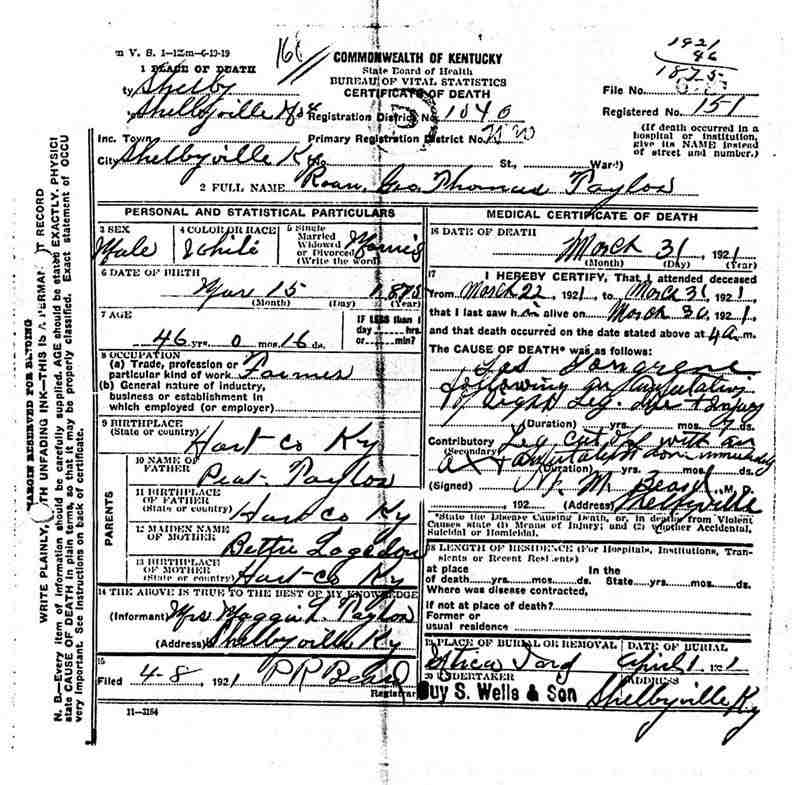 V. S. 1-12m-6-13-19
1 PLACE OF DEATH
Shelby
Shelbyville
Inc. Town
City Shelbyville Ky
COMMONWEALTH OF KENTUCKY
State Board of Health
BUREAU OF VITAL STATISTICS
CERTIFICATE OF DEATH
Registration District No. 1040
Primary Registration District No.
St., Ward)
1921
46
1875
File No.
Registered No. 151
(If death occurred in a
hospital or institution,
give its NAME instead
of street and number.)
2 FULL NAME Geo Thomas Taylor
PERSONAL AND STATISTICAL PARTICULARS
3 SEX
Male
4 COLOR OR RACE
White
5 Single
Married
Widowed
or Divorced
(Write the word)
6 DATE OF BIRTH
Mar 15 1875
(Month) (Day) (Year)
7 AGE
46 yrs. 0 mos. 16 ds.
IF LESS than 1
day hrs.
or min?
8 OCCUPATION
(a) Trade, profession or
particular kind of work Farmer
(b) General nature of industry,
business or establishment in
which employed (or employer)
9 BIRTHPLACE
(State or country) Hart co Ky
PARENTS
10 NAME OF
FATHER Taylor
11 BIRTHPLACE
OF FATHER
(State or country) Hart co Ky
12 MAIDEN NAME
OF MOTHER Bettie
13 BIRTHPLACE
OF MOTHER
(State or country) Hart co Ky
14 THE ABOVE IS TRUE TO THE BEST OF MY KNOWLEDGE
(Informant) Mrs Maggie L. Taylor
(Address) Shelbyville Ky
15
Filed 4-8, 1921
Registrar
11-3184
MEDICAL CERTIFICATE OF DEATH
16 DATE OF DEATH
March 31, 1921
(Month) (Day) (Year)
17 I HEREBY CERTIFY, That I attended deceased
from March 22, 1921, to March 31 1921,
that I last saw him alive on March 30, 1921,
and that death occurred on the date stated above at 4a m.
The CAUSE OF DEATH* was as follows:
Gas Gangrene
following amputation
of right Leg.
(Duration) yrs. mos. ds.
Contributory Leg cut off with an
(Secondary) ax
(Duration) yrs. mos. ds.
(Signed) M. D.
192 (Address) Shelbyville
*State the Disease Causing Death, or, in deaths from Violent
Causes state (1) Means of Injury; and (2) whether Accidental,
Suicidal or Homicidal.
18 LENGTH OF RESIDENCE (For Hospitals, Institutions, Tran-
sients or Recent Residents)
at place In the
of death yrs. mos. ds. State yrs. mos. ds.
Where was disease contracted,
If not at place of death?
Former or
usual residence
19 PLACE OF BURIAL OR REMOVAL
DATE OF BURIAL
April 1 1921
20 UNDERTAKER
Guy S. Wells & Son
ADDRESS
Shelbyville Ky
MARGIN RESERVED FOR BINDING
WRITE PLAINLY, WITH UNFADING INK—THIS IS A PERMANENT RECORD
N. B.—Every item of information should be carefully supplied. AGE should be stated EXACTLY. PHYSICI
state CAUSE OF DEATH in plain terms, so that it may be properly classified. Exact statement of OCCU
very important. See instructions on back of certificate.